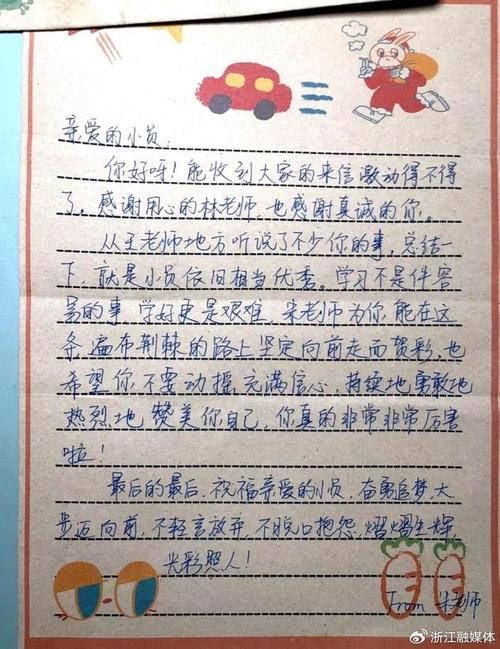 亲爱的小员,
你好呀!能收到大家的来信激动得不得
了。感谢用心的林老师,也感谢真诚的你。
从王老师地方听说了不少你的事,总结一
下,就是小员依旧相当优秀。学习不是件容
易的事,学好更是艰难,朱老师为你能在这
条遍布荆棘的路上坚定向前走而贺彩,也
希望你不要动摇,充满信心,持续地勇敢地
热烈地赞美你自己,你真的非常非常厉害
啦!
最后的最后,祝福亲爱的小员,奋勇追梦,大
步迈向前,不轻言放弃,不脱口抱怨,熠熠生辉,
光彩照人!
From 朱老师
@浙江融媒体